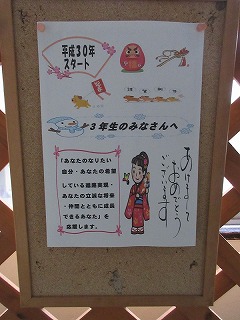 平成30年
スタート
3年生のみなさんへ
あけまして
おめでとう
ございます
「あなたのなりたい
自分・あなたの希望
している進路実現・
あなたの立派な将来
・仲間とともに成長
できるあなた」を
応援します。